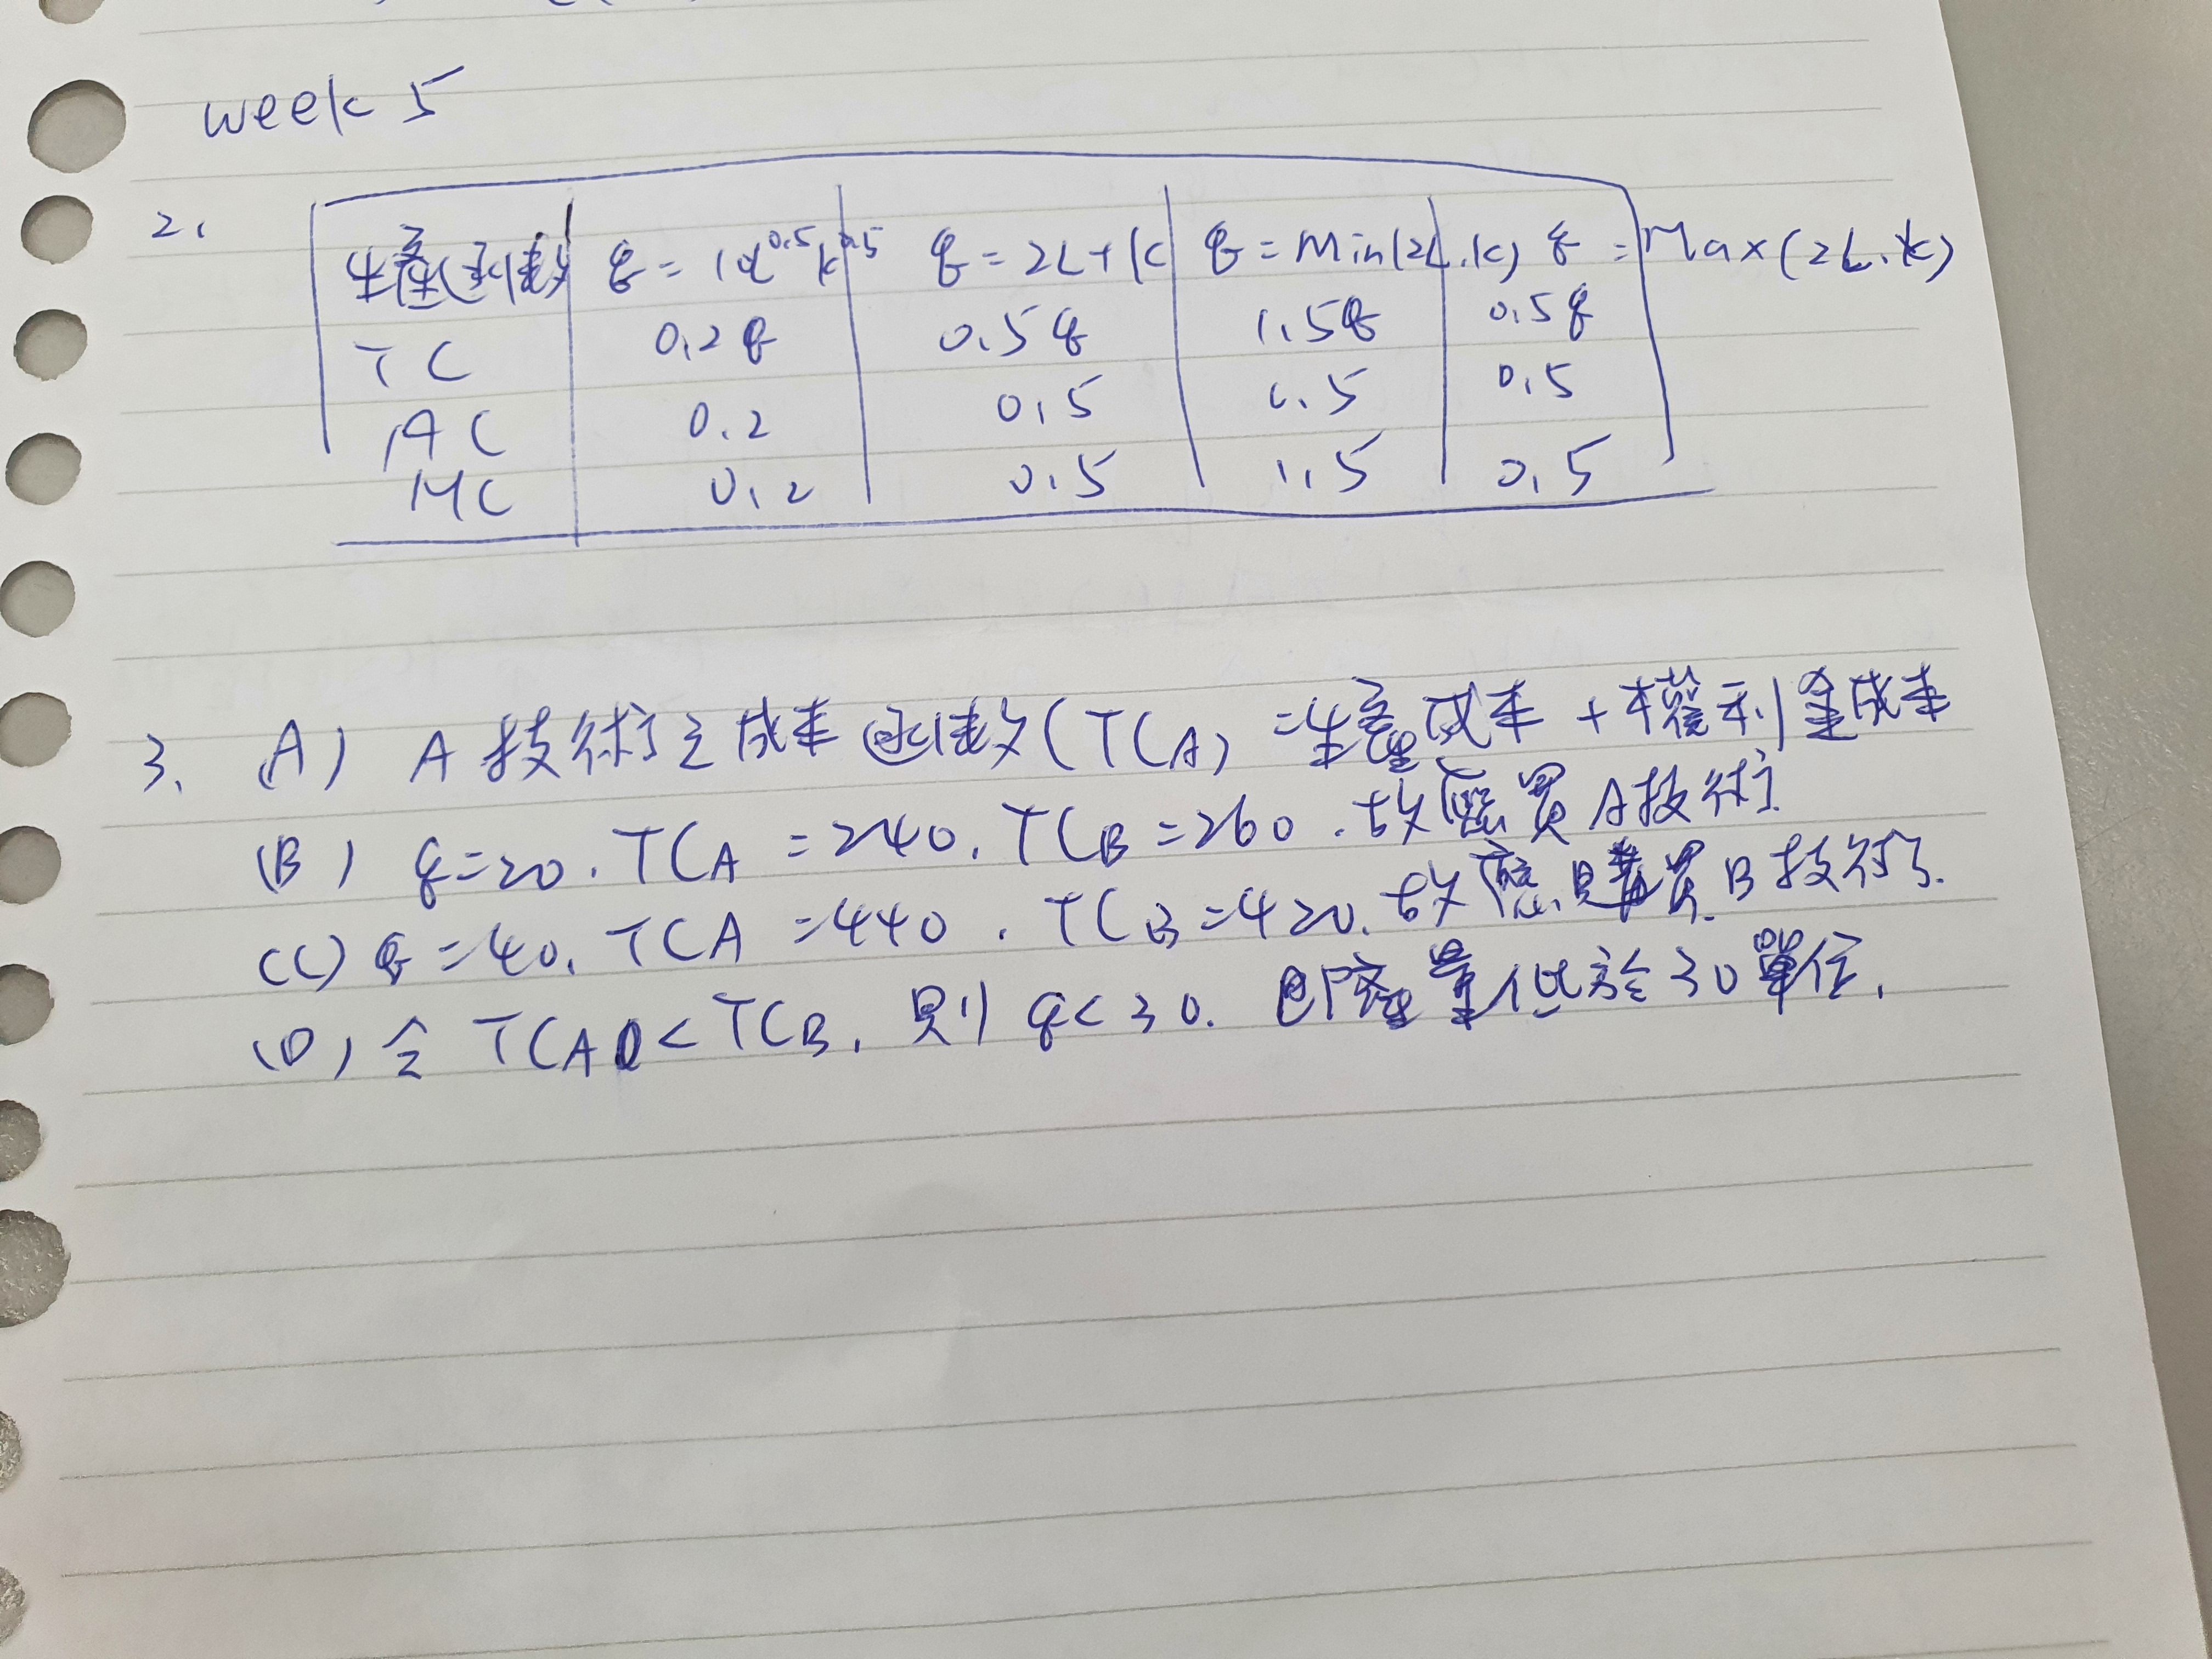 week 5
2.
生產函數 q=12L^0.5k^0.5 q=2L+k q=Min(2L.k) q=Max(2L.k)
TC 0.2q 0.5q 1.5q 0.5q
AC 0.2 0.5 1.5 0.5
MC 0.2 0.5 1.5 0.5
3. (A) A技術之成本函數(TCA)=勞動成本+機械利量成本
(B) q=20. TCA=240. TCB=260. 故應選A技術
(C) q=40. TCA=440. TCB=420. 故應選擇B技術.
(D) 令 TCA<TCB. 則 q<30. 即產量低於30單位.